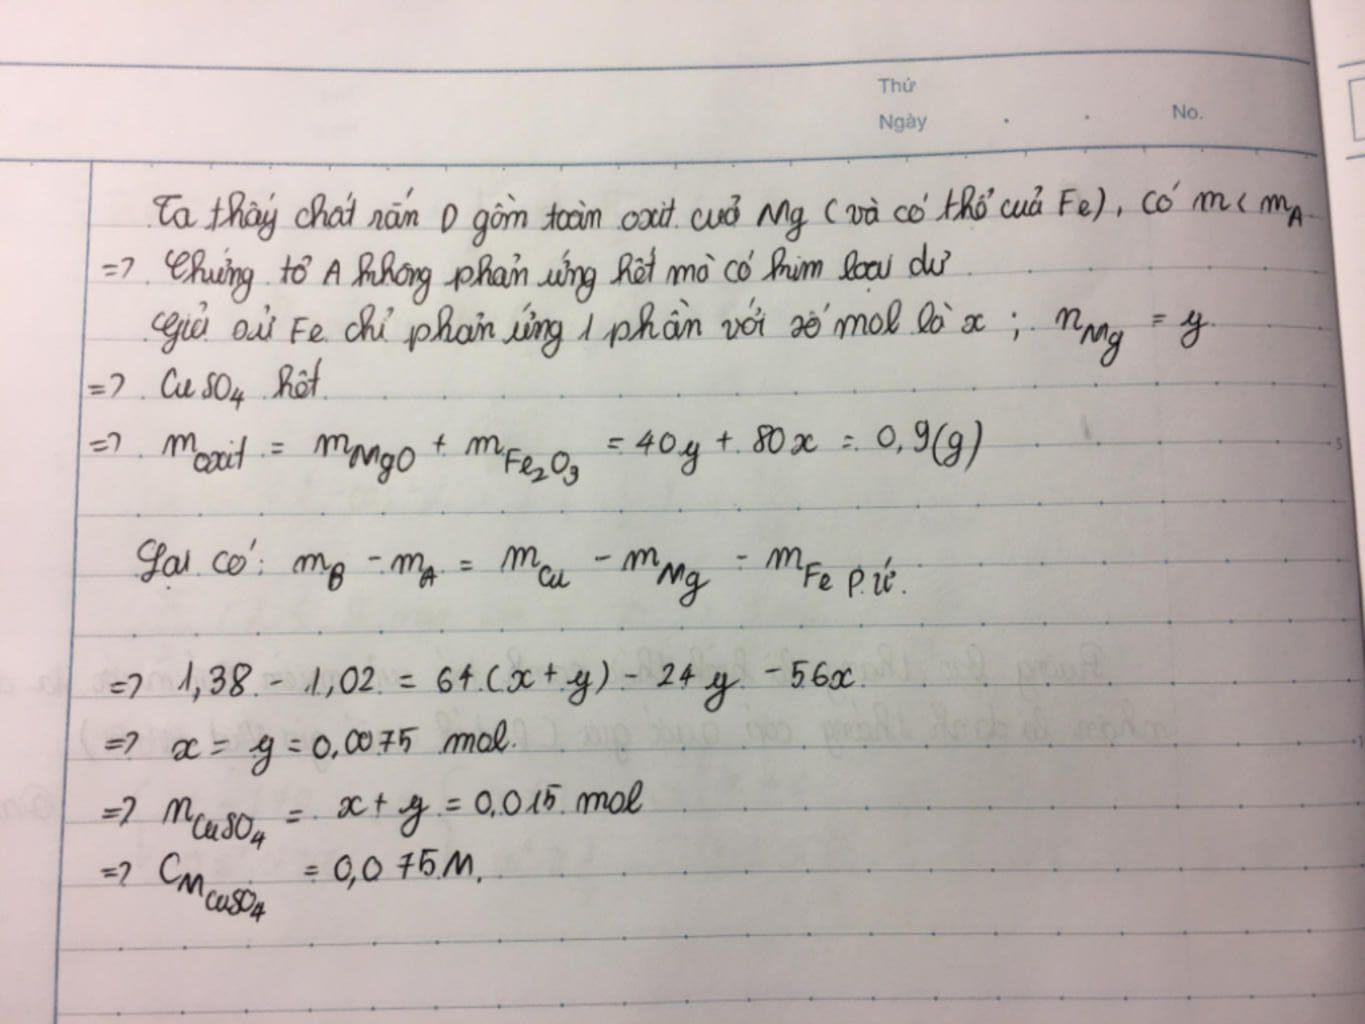 Thứ
Ngày . . No.
Ta thấy chất rắn D gồm toàn oxit của Mg (và có thể của Fe), có m < mA
=> Chứng tỏ A không phản ứng hết mà có kim loại dư
Giả sử Fe chỉ phản ứng 1 phần với số mol là x ; nMg = y
=> CuSO4 hết
=> moxit = mMgO + mFe2O3 = 40y + 80x = 0,9(g)
Lại có: mB - mA = mCu - mMg - mFe p.ứ.
=> 1,38 - 1,02 = 64.(x+y) - 24y - 56x
=> x = y = 0,0075 mol.
=> nCuSO4 = x + y = 0,015 mol
=> CM CuSO4 = 0,075M.